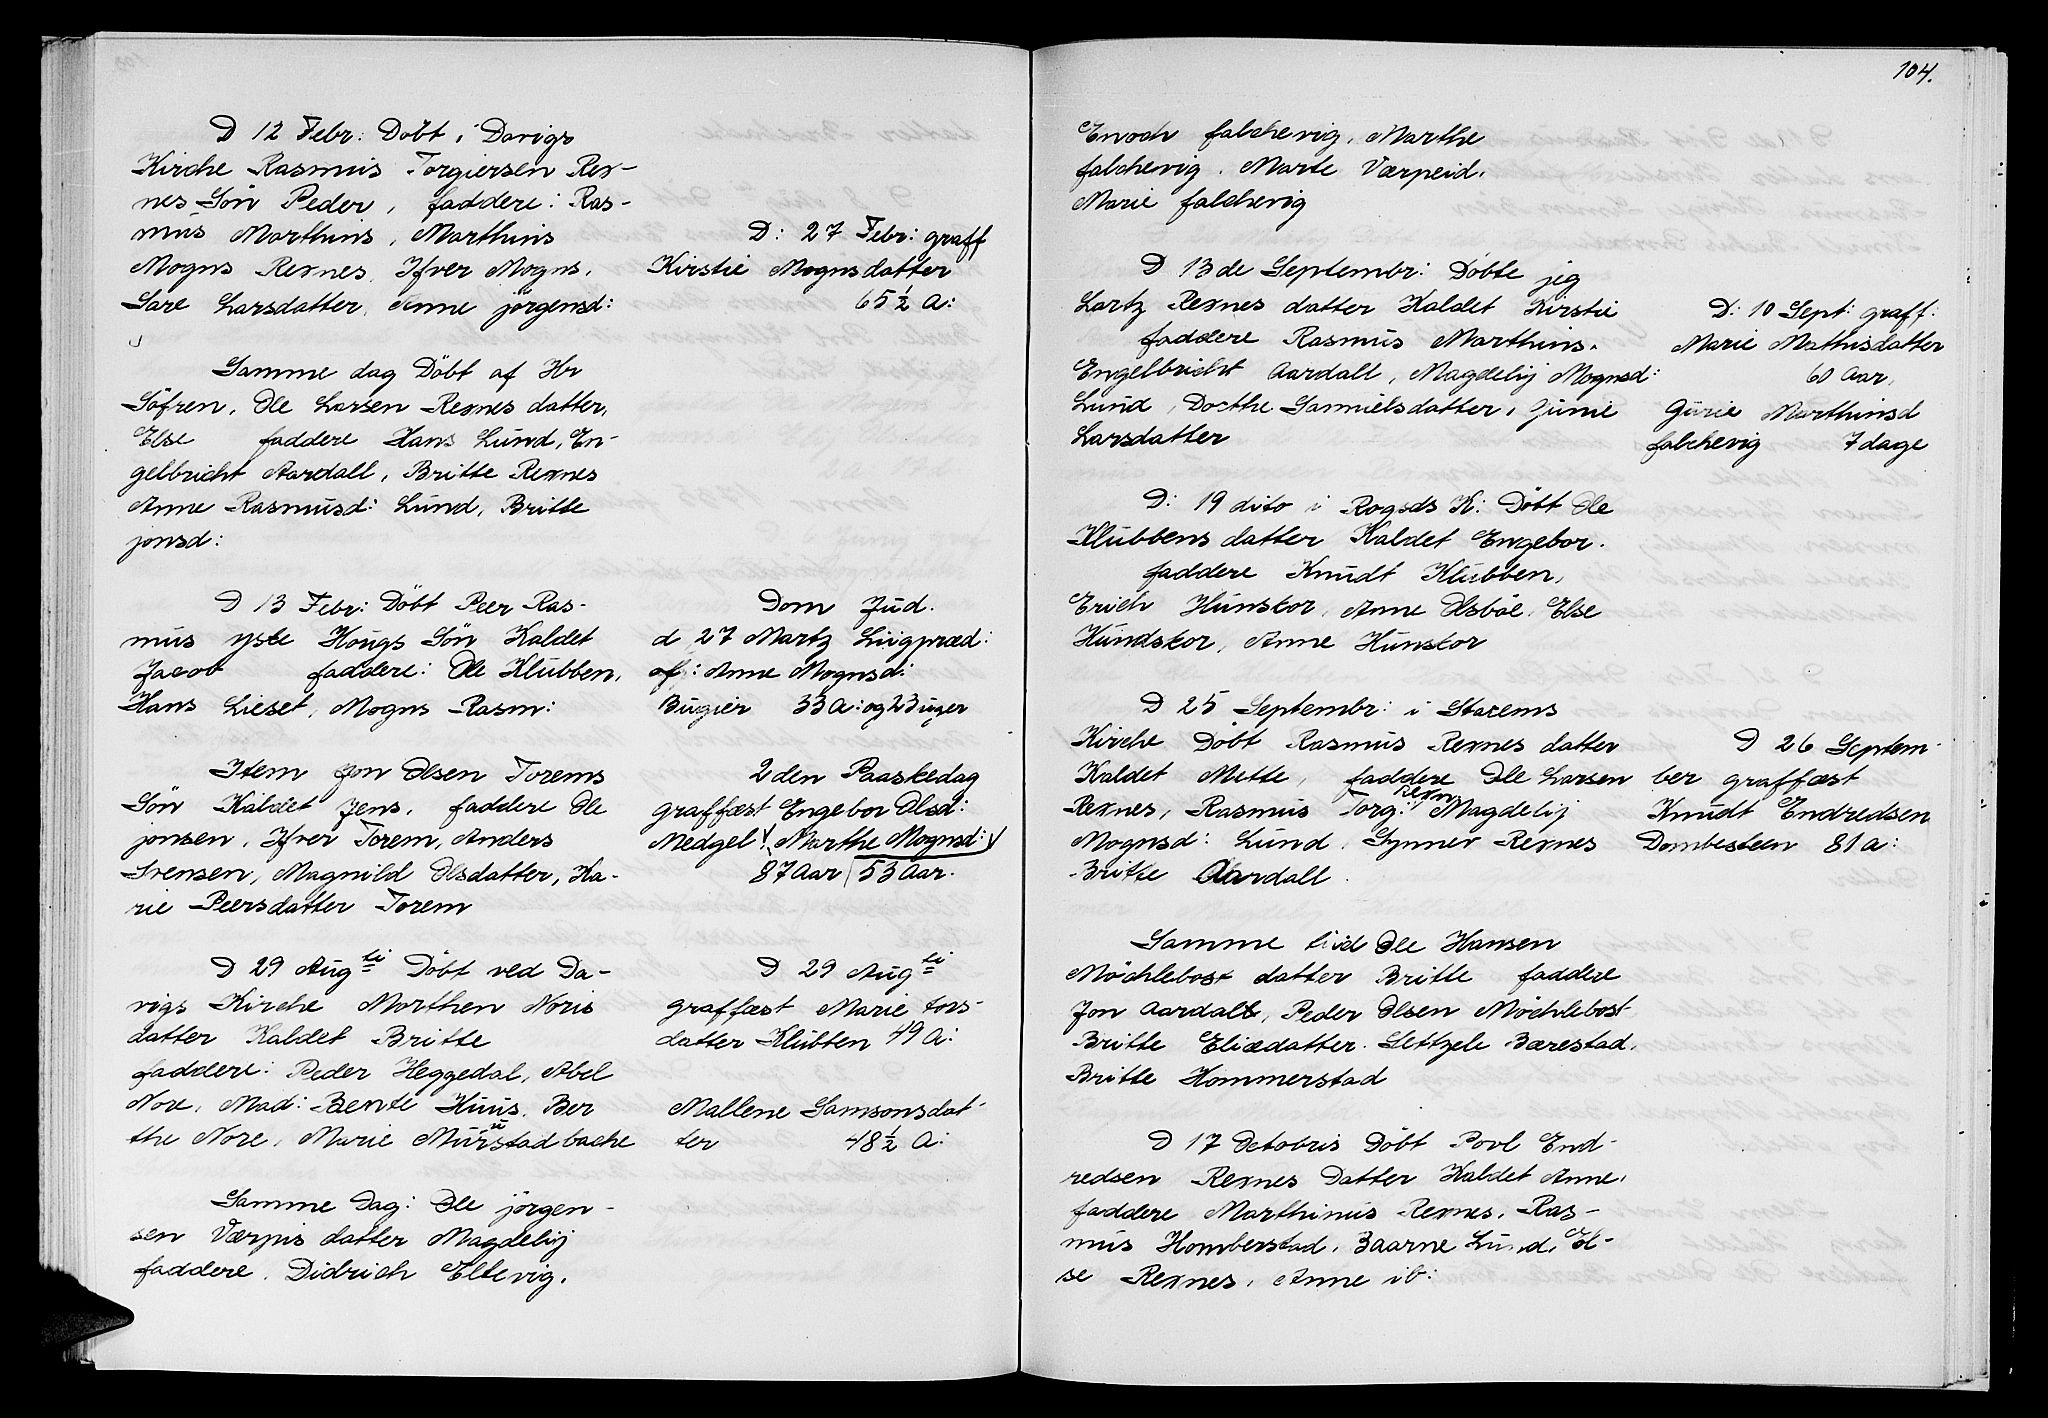 D 12 Febr: Döbt i Davigs
Kirche Rasmus Torgiersen Rex-
nes Sön Peder, faddere: Ras-
mus Marthins, Marthins
Mogns Rexnes, Ifver Mogns.
Sare Larsdatter, Anne jörgensd:
Samme dag Döbt af Hr
Söfren, Ole Larsen Rexnes datter,
Else faddere Hans Lund, En-
gelbricht Aardall, Britte Rexnes
Anne Rasmusd: Lund, Britte
jonsd:
D 13 Febr: Döbt Peer Ras-
mus yste Hougs Sön Kaldet
Jacob faddere: Ole Klubben,
Hans Lieset, Mogns Rasm:
Item Jon Olsen Torems
Sön Kaldet Jens, faddere Ole
jonsen, Ifver Torem, Anders
Svensen, Magnild Olsdatter, Ka-
rie Peersdatter Torem
D 29 Augti Döbt ved Da-
vigs Kirche Morthen Noris
datter Kaldet Britte
faddere: Peder Heggedal, Abel
Nore, Mad: Bente Huus, Ber
the Nore, Marie Murstadbache
Samme Dag: Ole jörgen-
sen Værpis datter Magdelij
faddere. Didrich Eltevig,
D: 27 Febr: graff
Kirstie Mognsdatter
65½ A:
Dom Jud.
d 27 Martz Liigpræd:
af: Anne Mognsd:
Bugier 33 A: og 23 uger
2den Paaskedag
graffæst Engebor Olsd:
Nedgel Marthe Mognsd:
87 Aar 53 Aar.
D 29 Augti
graffæst Marie tors-
datter Klubben 49 A:
Mallene Samsonsdat-
ter 48½ A:
104.
Enoch falchevig, Marthe
falchevig, Marte Værpeid,
Marie falchevig
D 13de Septembr: Döbte jeg
Lartz Rexnes datter Kaldet Kirstie
faddere Rasmus Marthins.
Engelbricht Aardall, Magdelij Mognsd:
Lund, Dorthe Samuelsdatter, Gunie
Larsdatter
D: 19 dito i Rogsds K: Döbt Ole
Klubbens datter Kaldet Engebor.
faddere Knudt Klubben,
Erich Hunskor, Anne Olsböe, Else
Hundskor, Anne Hunskor
D 25 Septembr: i Starems
Kirche Döbt Rasmus Rexnes datter
Kaldet Mette, faddere Ole Larsen
Rexnes, Rasmus Torg: Rexn Magdelij
Mognsd: Lund, Synnev Rexnes
Britte Aardall.
Samme tiid Ole Hansen
Möchlebost datter Britte faddere
Jon Aardall, Peder Olsen Möchlebost
Britte Eliædatter. Settzele Bærestad,
Britte Hommerstad
D 17 Octobris Döbt Povl End-
redsen Rexnes Datter Kaldet Anne,
faddere Marthinus Rexnes, Ras-
mus Homberstad, Baarne Lund, El-
se Rexnes, Anne ib:
D: 10 Sept: graff:
Marie Mathisdatter
60 Aar,
Gurie Marthinsd
falchevig 7 dage
D 26 Septem-
ber graffæst
Knudt Endredsen
Dombesteen 81 A: